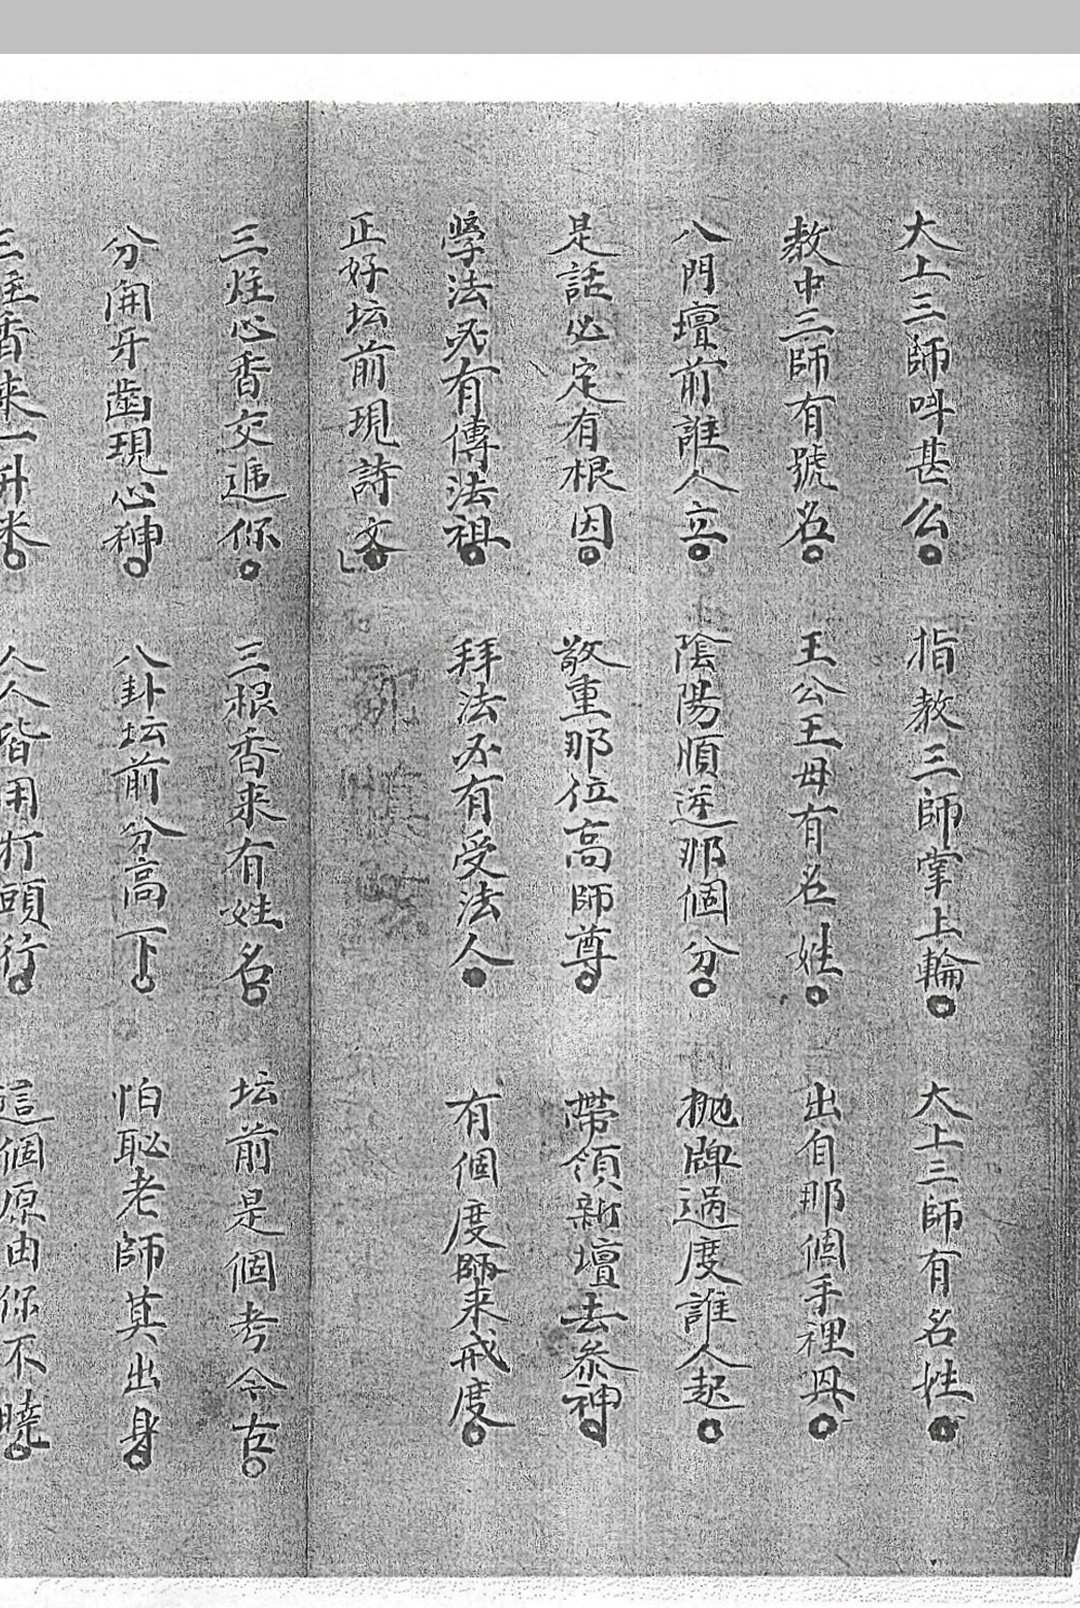 大上三師呌甚么 指教三師掌上輪 大上三師有名性
教中三師有號名 王公王母有名姓 出自那個手裡
八門壇前誰人立 陰陽順逆那個分 抛牌過度誰人起
是話必定有根因 敬重那位高師尊 帶領新壇去叅神
學法必有傳法祖 拜法必有受法人 有個度師来戒度
正好坛前現詩文
三炷心香交逓你 三根香来有姓名 坛前是個考令古
分開牙齒現心神 八卦坛前分高下 怕恥老師莫出身
三炷香来一升米 人人皆用打頭行 這個原由你不曉